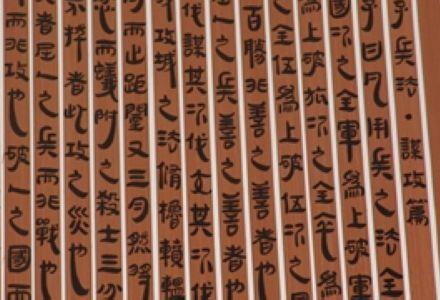 子兵法·謀攻篇
子曰凡用兵之法全
國次之全軍爲上破軍
上破旅次之全卒爲
之全伍爲上破伍次之
百勝非善之善者也
之兵善之善者也
伐謀其次伐交其次伐
攻城之法脩櫓轒轀
而止距闉又三月然後
而蟻附之殺士三分
不拔者此攻之災也
者屈人之兵而非戰也
而非攻也破人之國而